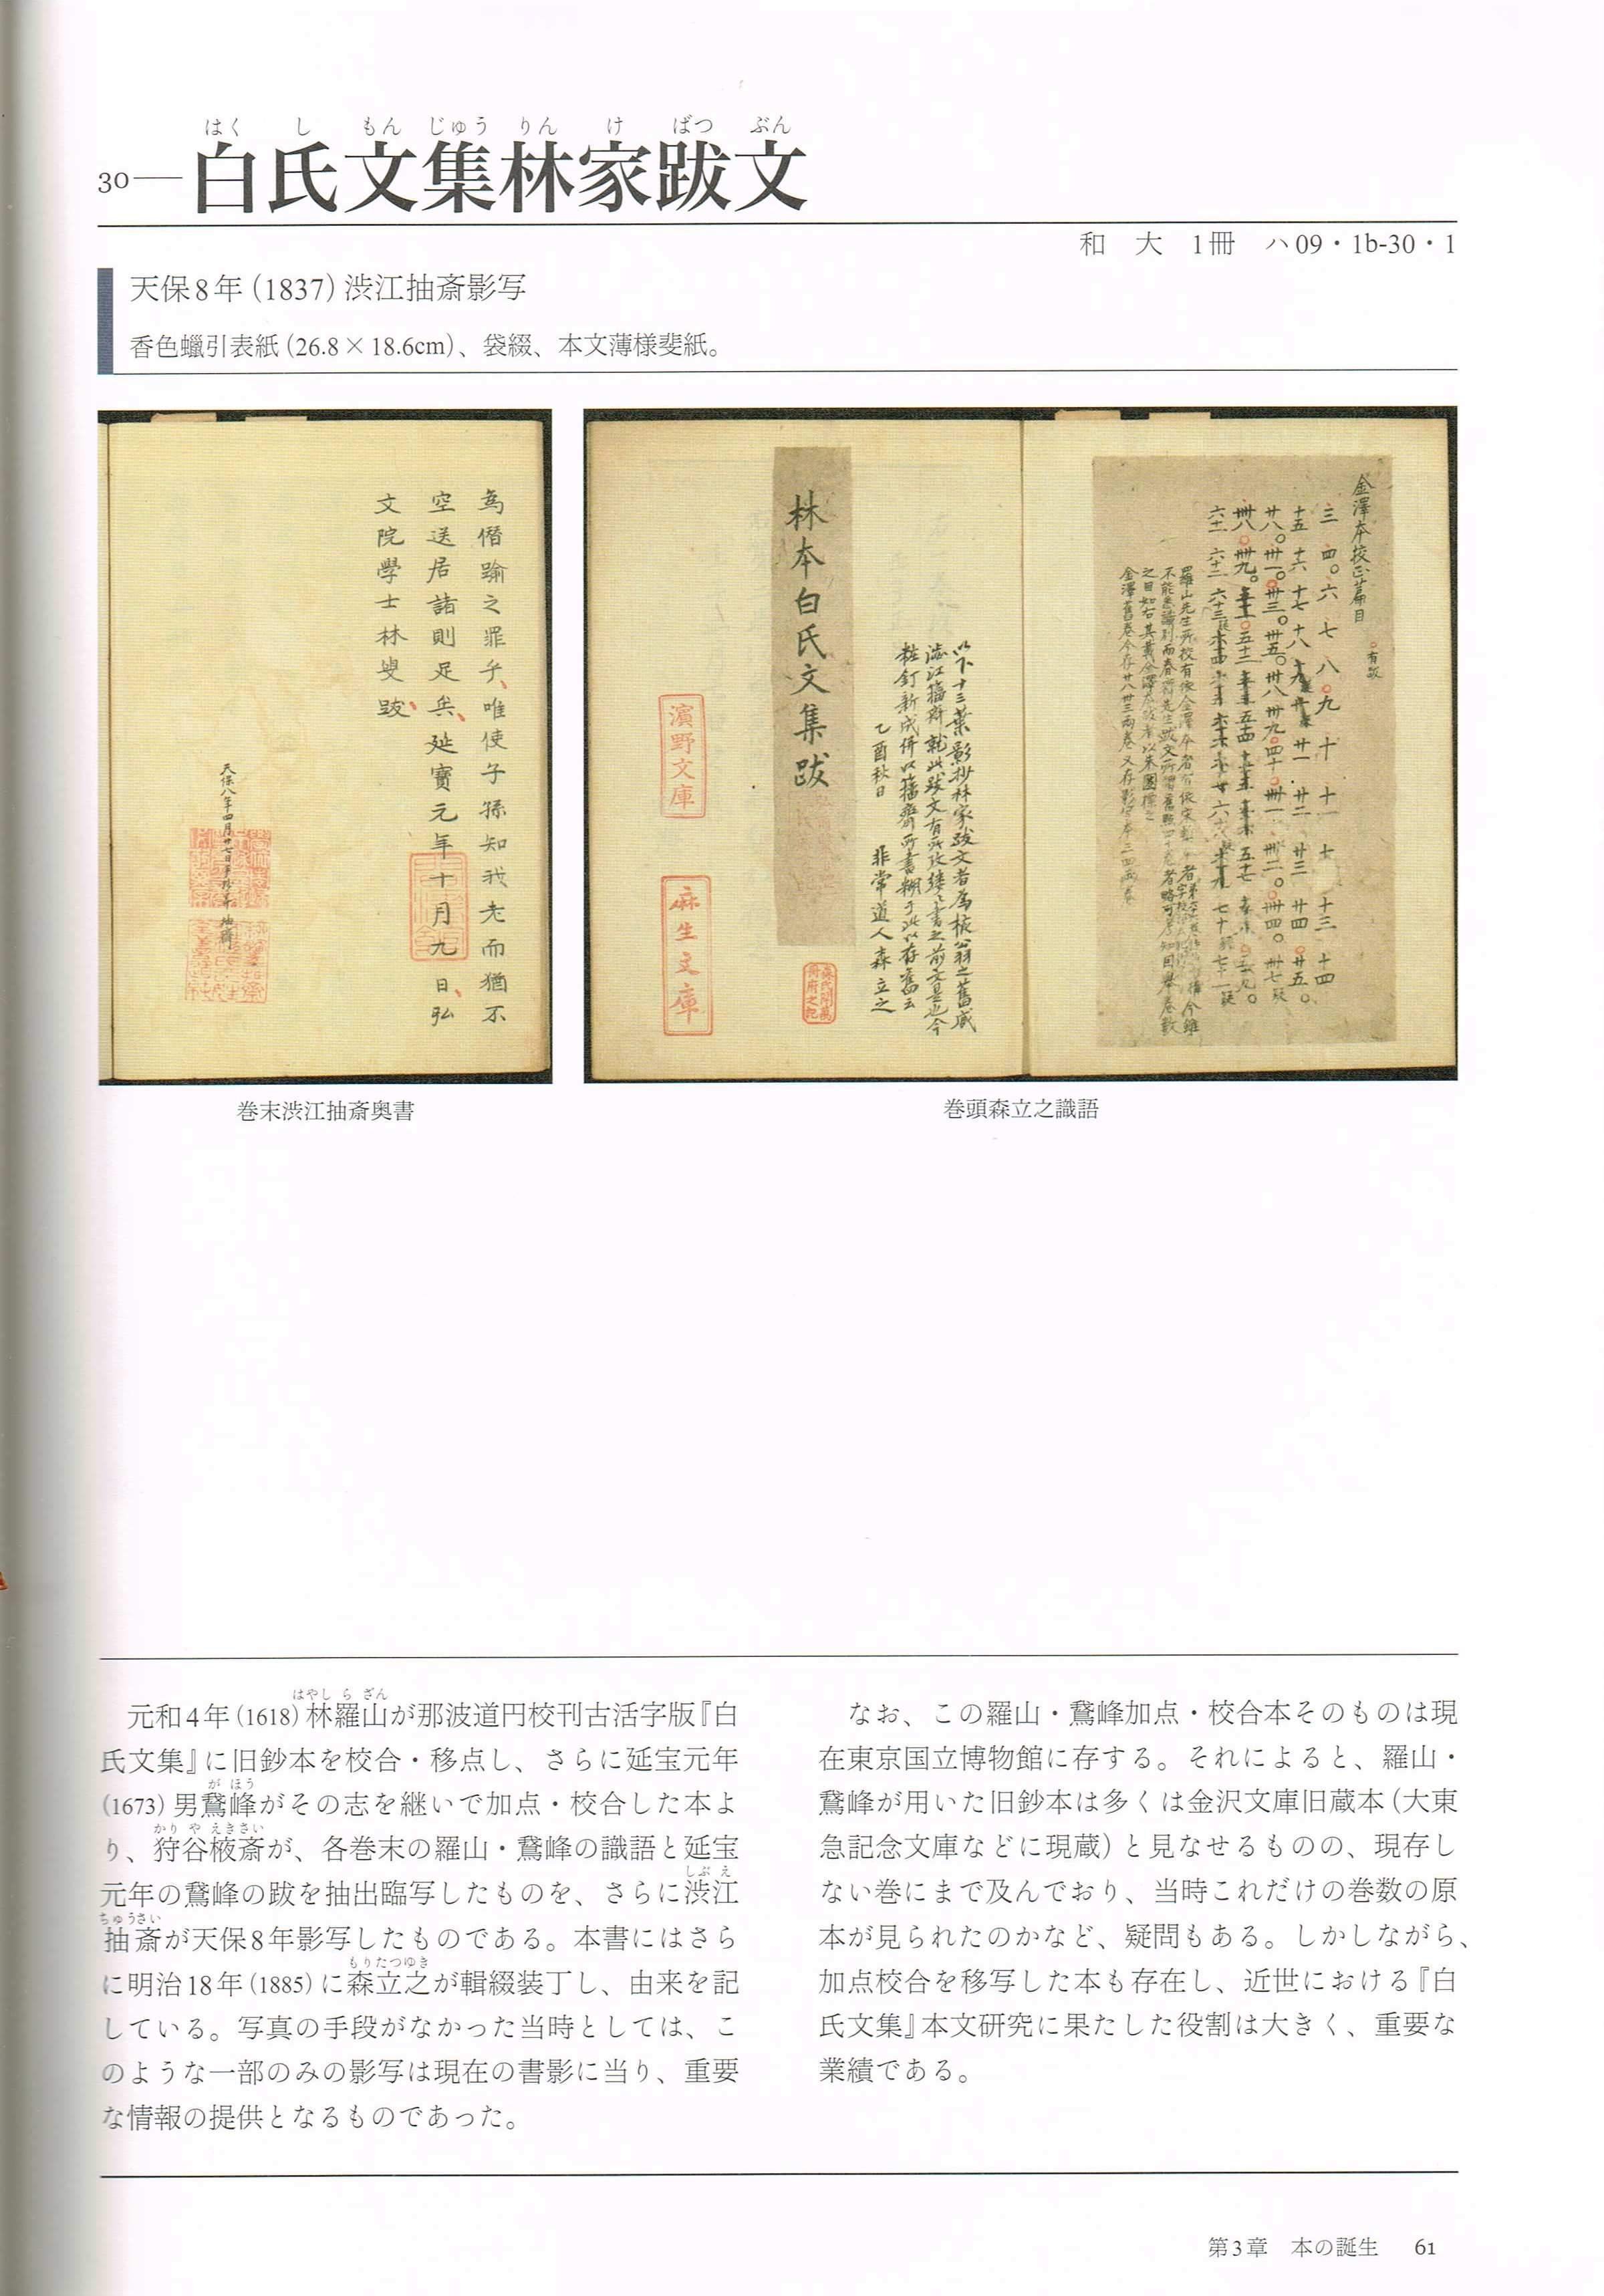 はく し もん じゅう りん け ばつ ぶん
30―白氏文集林家跋文
和 大 1冊 ハ09・1b-30・1
天保8年(1837)渋江抽斎影写
香色蠟引表紙(26.8×18.6cm)、袋綴、本文薄様斐紙。
金澤本校正篇目
林本白氏文集跋
以下十三葉影抄林家跋文者為棭翁之舊蔵
乙酉秋日 非常道人森立之
濱野文庫
麻生文庫
為僭踰之罪乎唯使子孫知我老而猶不
空送居諸則足矣延寶元年十月九日弘
文院學士林叟跋
巻末渋江抽斎奥書
巻頭森立之識語
はやし ら ざん
元和4年(1618)林羅山が那波道円校刊古活字版『白
氏文集』に旧鈔本を校合・移点し、さらに延宝元年
が ほう
(1673)男鵞峰がその志を継いで加点・校合した本よ
かり や えきさい
り、狩谷棭斎が、各巻末の羅山・鵞峰の識語と延宝
しぶ え
元年の鵞峰の跋を抽出臨写したものを、さらに渋江
ちゅうさい
抽斎が天保8年影写したものである。本書にはさら
もりたつゆき
に明治18年(1885)に森立之が輯綴装丁し、由来を記
している。写真の手段がなかった当時としては、こ
のような一部のみの影写は現在の書影に当り、重要
な情報の提供となるものであった。
なお、この羅山・鵞峰加点・校合本そのものは現
在東京国立博物館に存する。それによると、羅山・
鵞峰が用いた旧鈔本は多くは金沢文庫旧蔵本(大東
急記念文庫などに現蔵)と見なせるものの、現存し
ない巻にまで及んでおり、当時これだけの巻数の原
本が見られたのかなど、疑問もある。しかしながら、
加点校合を移写した本も存在し、近世における『白
氏文集』本文研究に果たした役割は大きく、重要な
業績である。
第3章 本の誕生 61